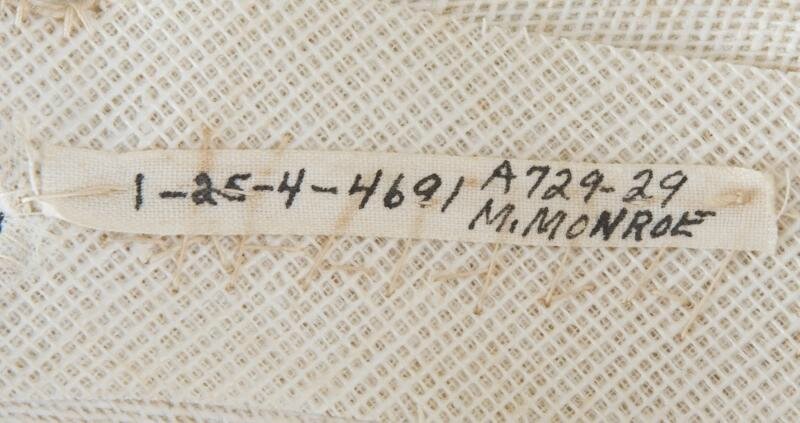 1-25-4-4691 A729-29
M. MONROE